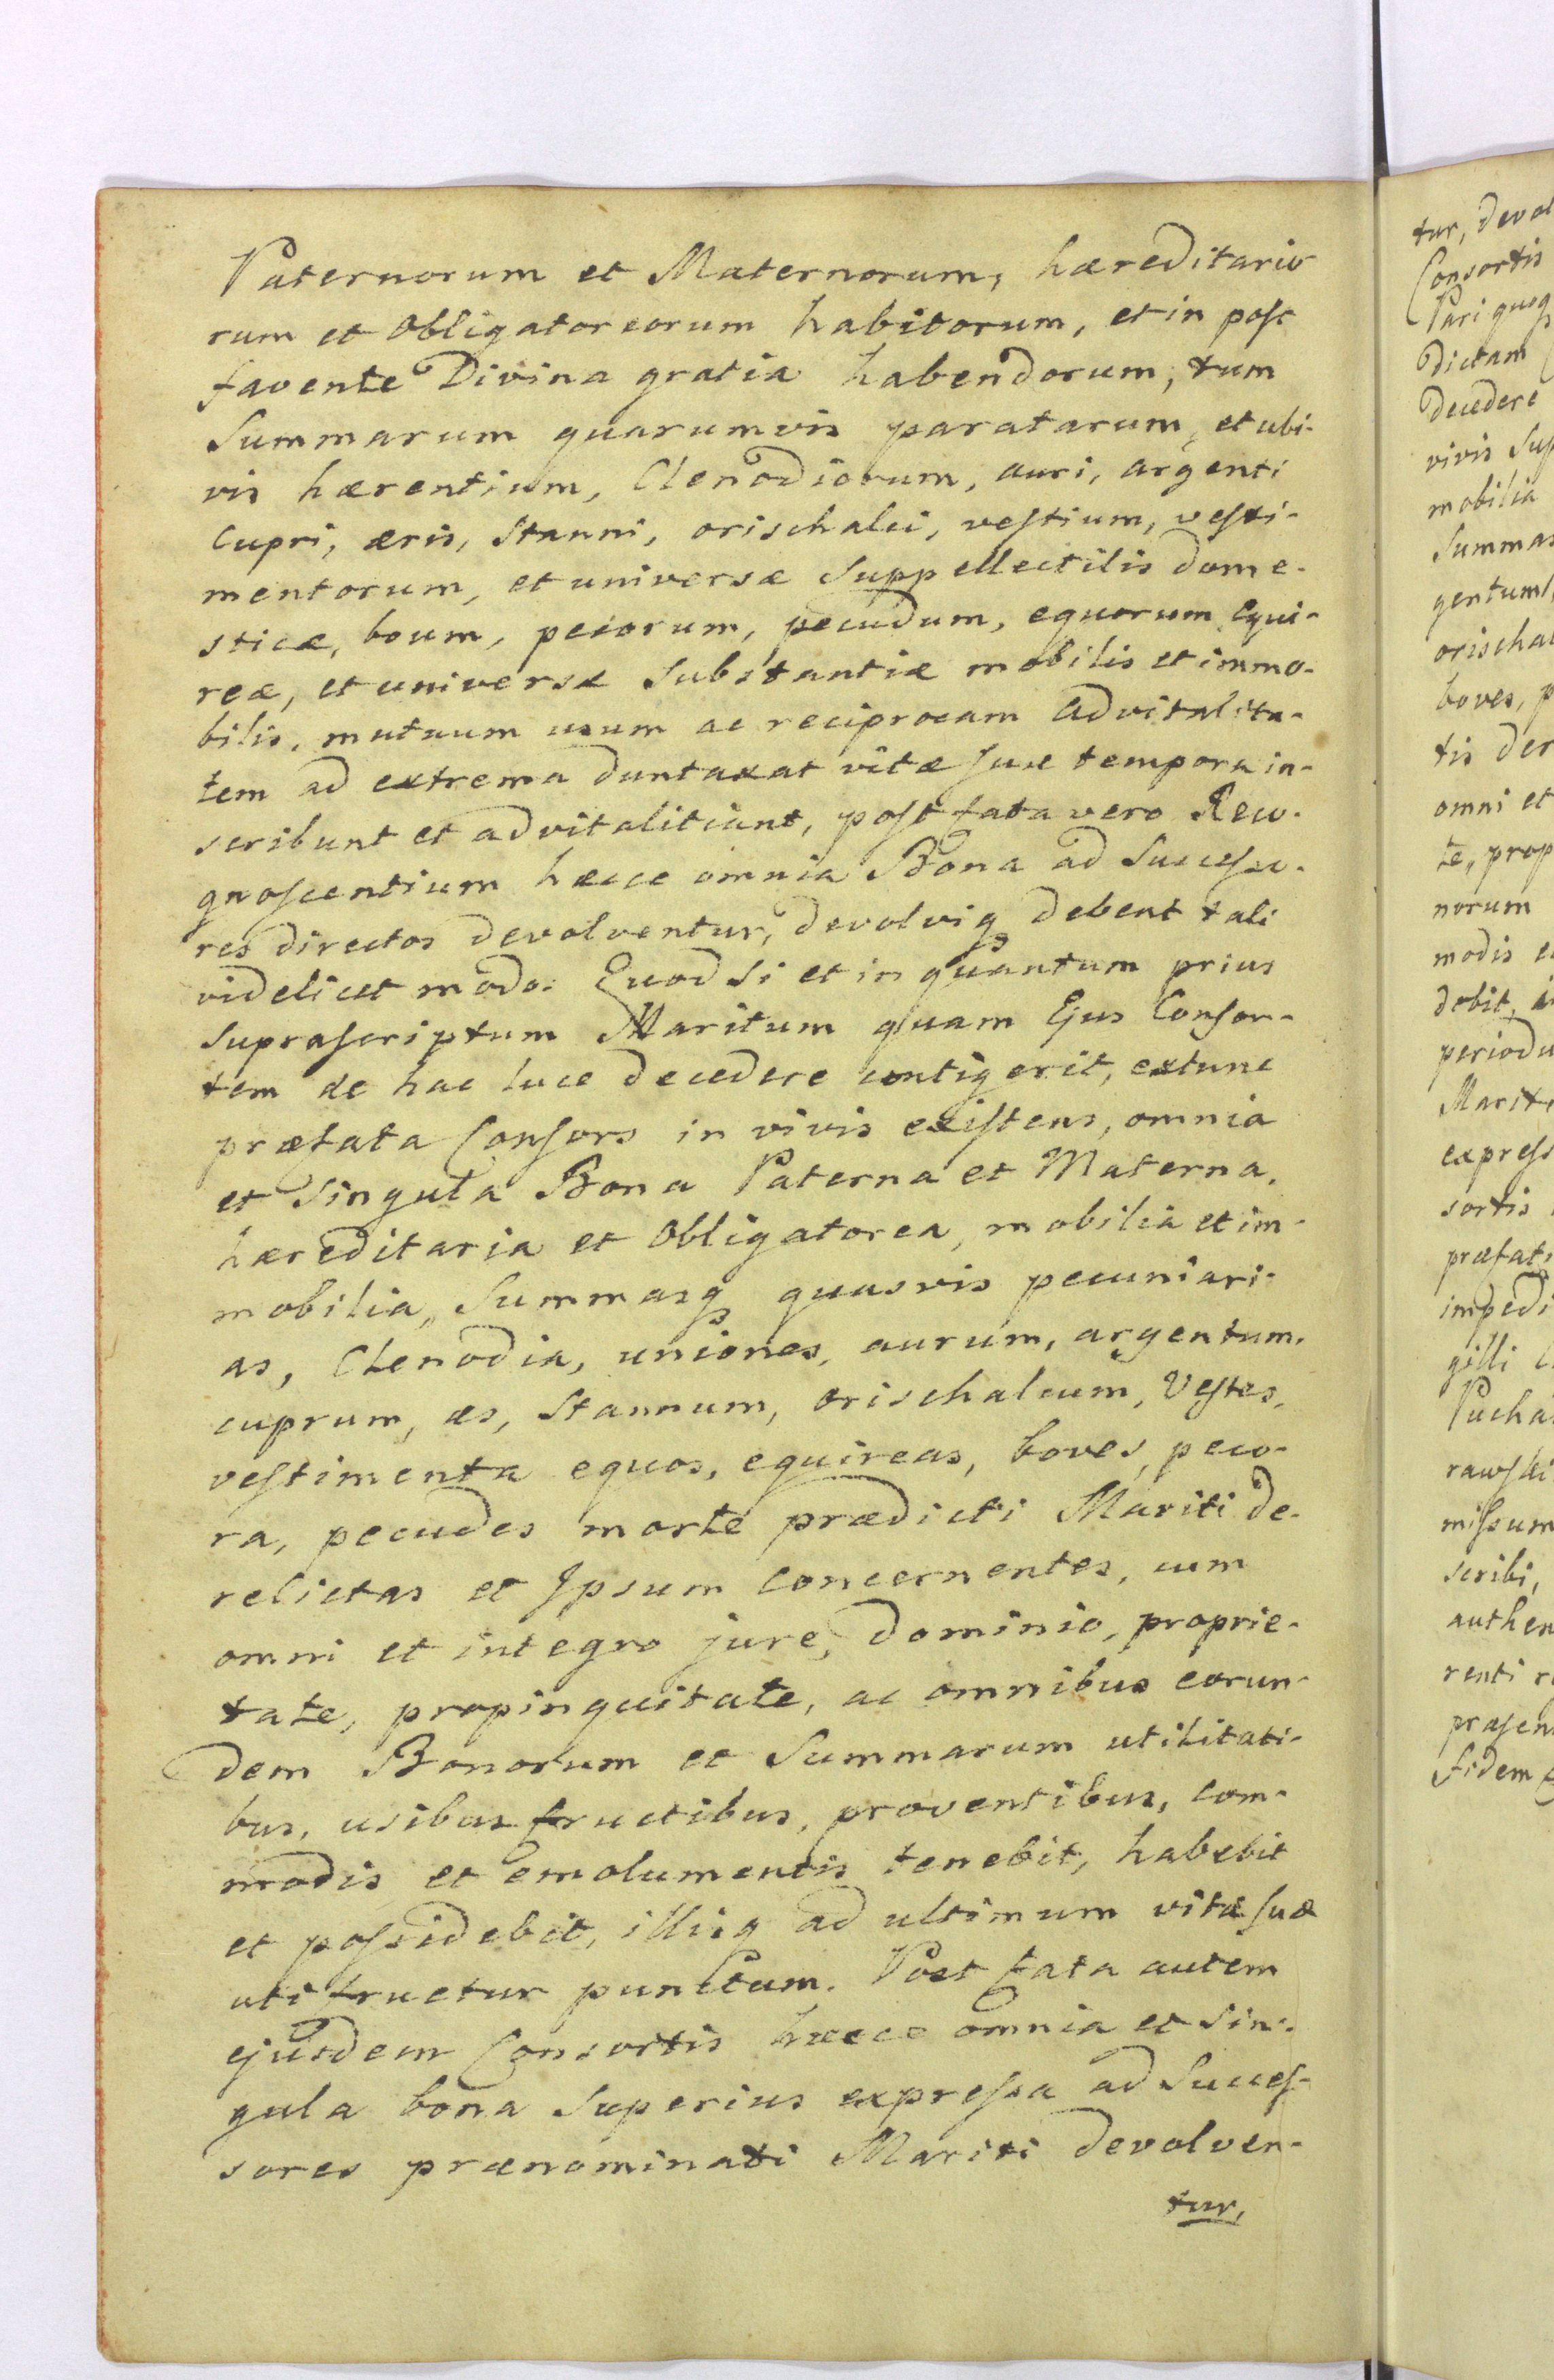 Paternorum et Maternorum, hæreditario
rum et Obligatoreorum habitorum, et in post
favente Divina gratia habendorum, tum
Summarum quarumvis paratarum, et ubi-
vis hærentium, Clenodiorum, auri, argenti
Cupri, æris, Stanni, orischalci, vestium, vesti-
mentorum, et universæ Suppellectilis dome-
sticæ, boum, pecorum, pecudum, equorum equi-
reæ, et universæ Substantiæ mobilis et immo-
bilis, mutuum usum ac reciprocam advitalita-
tem ad extrema duntaxat vitæ suæ tempora in-
scribunt et advitalitiant, post fata vero Reco-
gnoscentium hæcce omnia Bona ad Successo-
res directos devolventur, devolviq debent tali
videlicet modo: Quod Si et in quantum prius
Suprascriptum Maritum quam Ejus Consor-
tem de hac luce decedere contigerit, extunc
præfata Consors in vivis existens, omnia
et Singula Bona Paterna et Materna,
hæreditaria et Obligatorea, mobilia et im-
mobilia, Summasq quasvis pecuniari-
as, Clenodia, uniones, aurum, argentum,
cuprum, æs, Stannum, orischalcum, Vestes,
vestimenta equos, equireas, boves, peco-
ra, pecudes morte prædicti Mariti de-
relictas et Ipsum Concernentes, cum
omni et integro jure, dominio, proprie-
tate, propinquitate, ac omnibus eorun-
dem Bonorum et Summarum utilitati-
bus, usibus fructibus, proventibus, com-
modis et emolumentis tenebit, habebit
et possidebit, illiq ad ultimum vitæ suæ
uti fruetur punctum. Post fata autem
ejusdem Consortis hæcce omnia et Sin-
gula bona Superius expressa ad Succes-
sores prænominati Mariti devolven-
tur,
tur, devol
Consortis
Pari quoq
dictam
decedere
vivis Sup
mobilia
Summas
gentum,
orischal
boves, p
tis der
omni et
te, prop
norum
modis e
debit, i
periodu
Marit
express
sortis
præfat
impedi
gilli
Pucha
rawski
missum
scribi,
authen
renti r
præsen
fidem